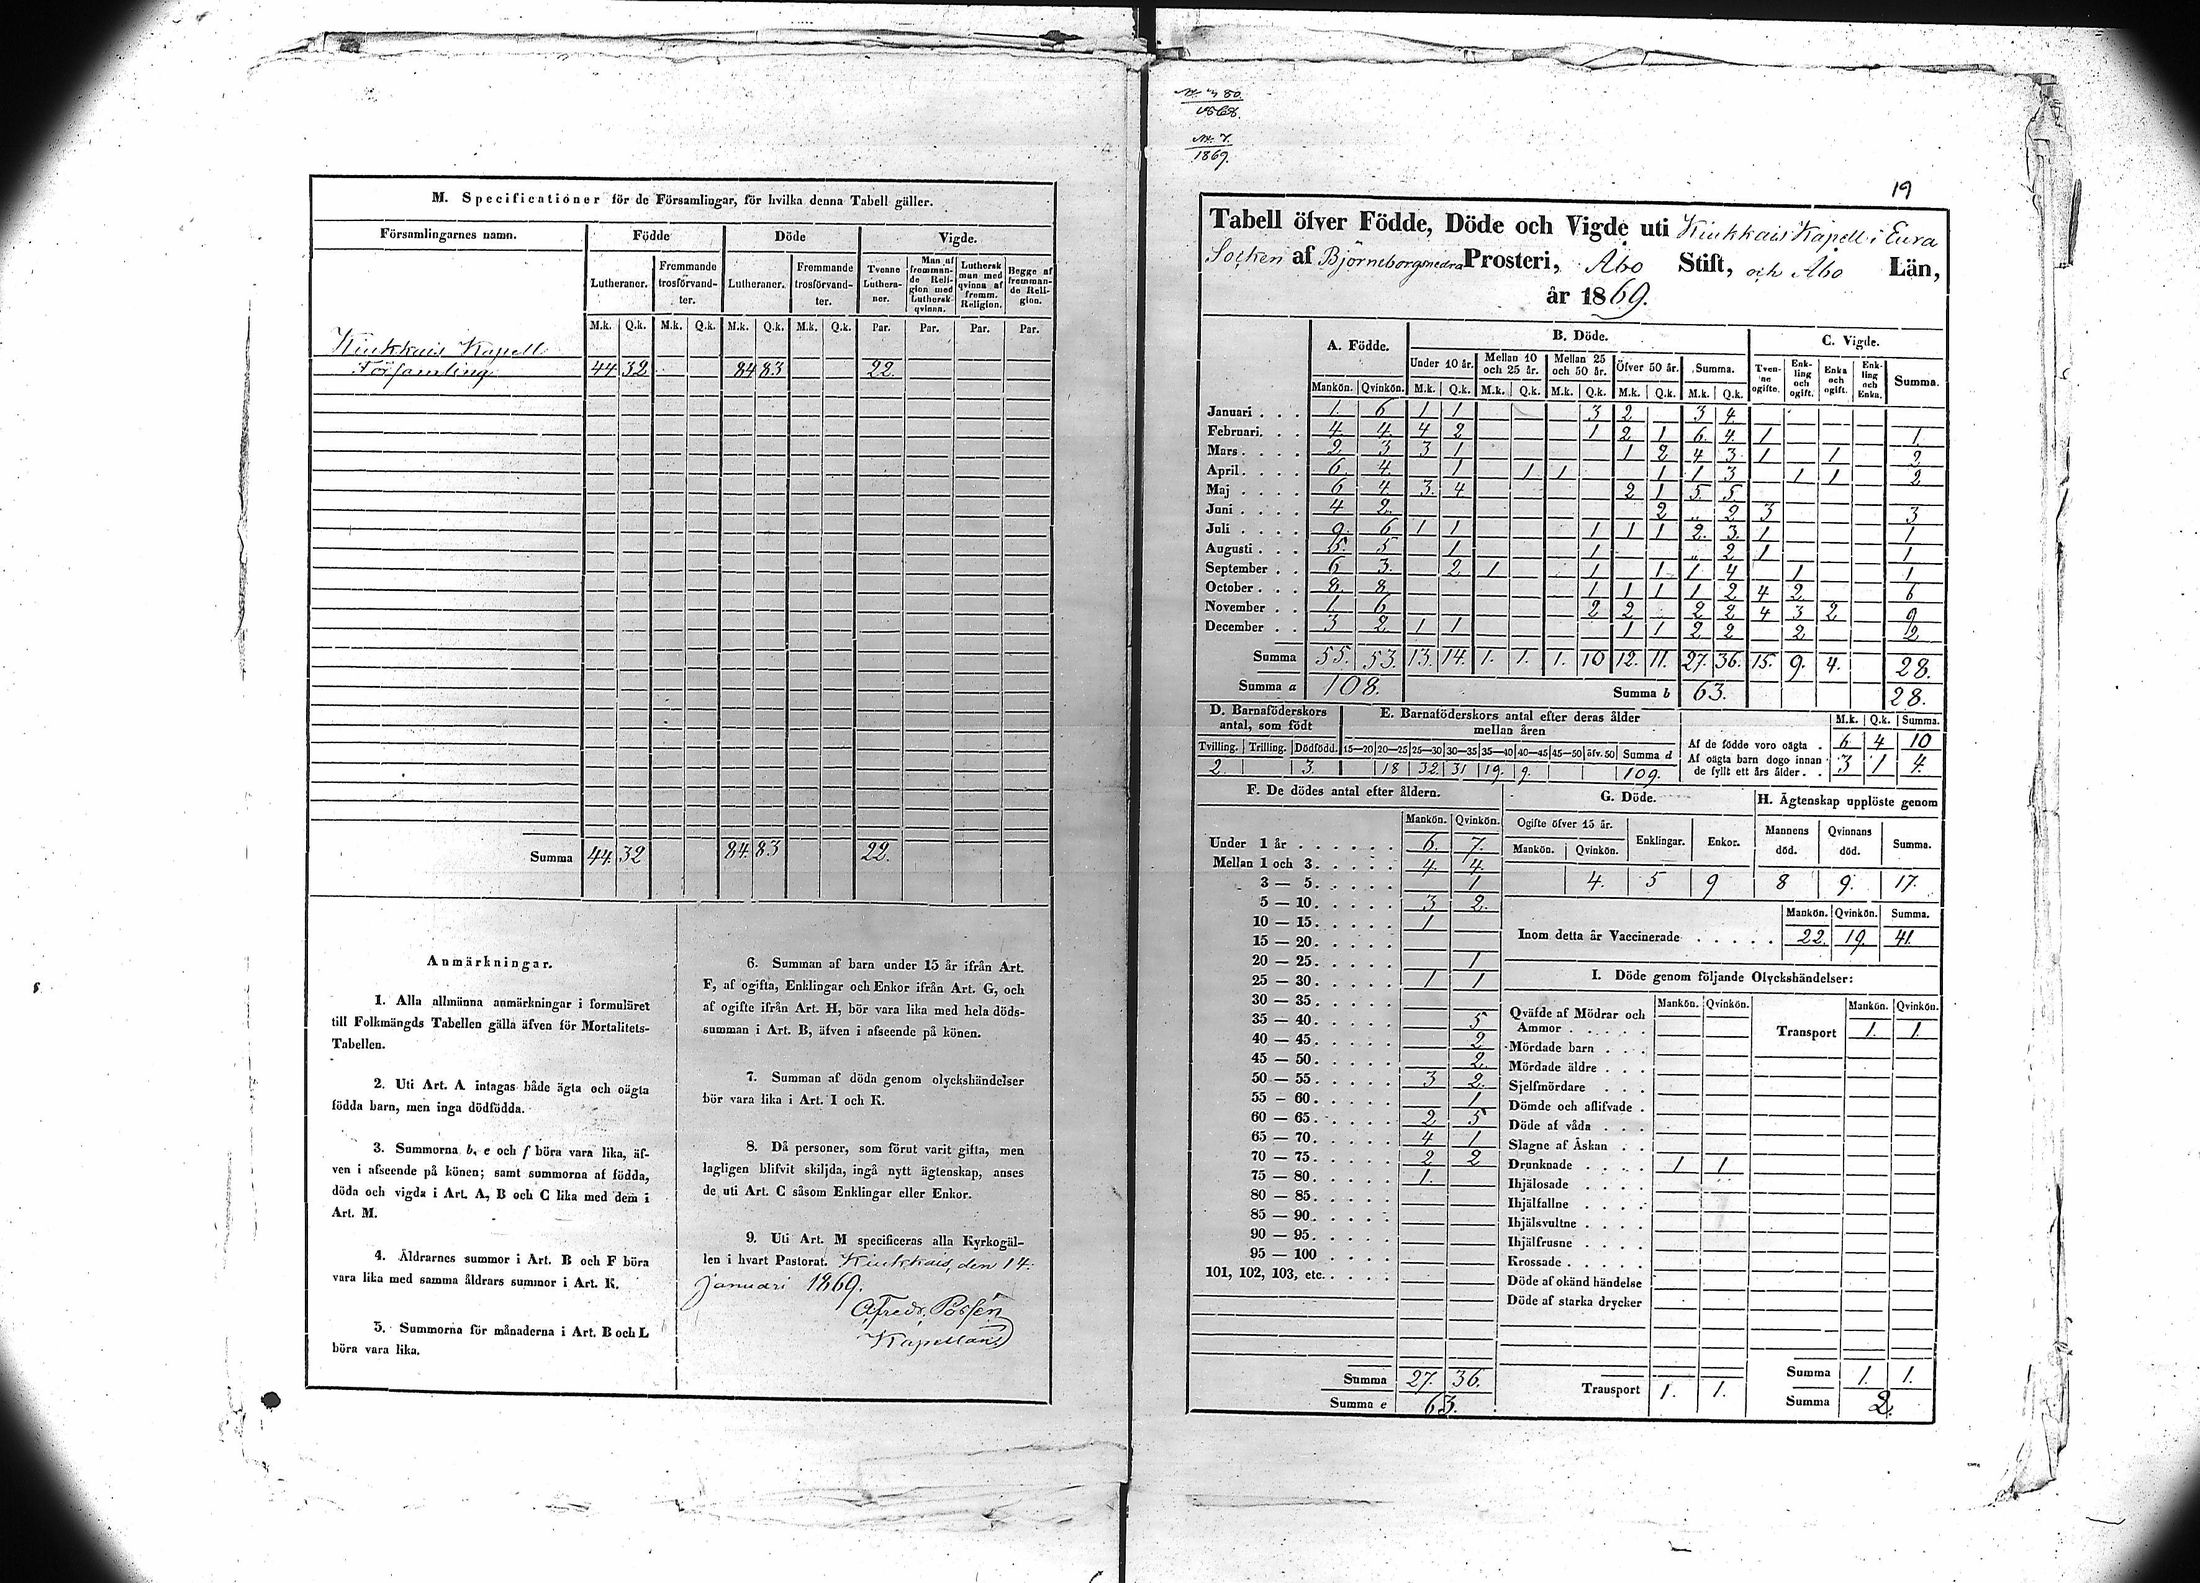 M. Specificationer för de Församlingar, för hvilka denna Tabell gäller.
Församlingarnes namn. Födde Döde Vigde.
Lutheraner. Fremmande trosförvandter. Lutheraner. Fremmande trosförvandter. Tvenne Lutheraner. Man af fremmande Religion med Luthersk qvinna. Luthersk man med qvinna af fremm. Religion. Begge af fremmande Religion.
M.k. Q.k. M.k. Q.k. M.k. Q.k. M.k. Q.k. Par. Par. Par. Par.
Kiukkais Kapell
Församling 44 32 84 83 22.
Summa 44 32 84 83 22.
Anmärkningar.
1. Alla allmänna anmärkningar i formuläret
till Folkmängds Tabellen gälla äfven för Mortalitets-
Tabellen.
2. Uti Art. A intagas både ägta och oägta
födda barn, men inga dödfödda.
3. Summorna b, e och f böra vara lika, äf-
ven i afseende på könen; samt summorna af födda,
döda och vigda i Art. A, B och C lika med dem i
Art. M.
4. Åldrarnes summor i Art. B och F böra
vara lika med samma åldrars summor i Art. K.
5. Summorna för månaderna i Art. B och L
böra vara lika.
6. Summan af barn under 15 år ifrån Art.
F, af ogifta, Enklingar och Enkor ifrån Art. G, och
af ogifte ifrån Art. H, bör vara lika med hela döds-
summan i Art. B, äfven i afseende på könen.
7. Summan af döda genom olyckshändelser
bör vara lika i Art. I och K.
8. Då personer, som förut varit gifta, men
lagligen blifvit skiljda, ingå nytt ägtenskap, anses
de uti Art. C såsom Enklingar eller Enkor.
9. Uti Art. M specificeras alla Kyrkogäl-
len i hvart Pastorat. Kiukkais, den 14
Januari 1869.
Kapellan
1868.
1869.
19
Tabell öfver Födde, Döde och Vigde uti Kiukkais Kapell i Eura
Socken af Björneborgs nedra Prosteri, Åbo Stift, och Åbo Län,
år 1869.
A. Födde. B. Döde. C. Vigde.
Under 10 år. Mellan 10 och 25 år. Mellan 25 och 50 år. Öfver 50 år. Summa. Tvenne ogifte. Enkling och ogift. Enka och ogift. Enkling och Enka. Summa.
Mankön. Qvinkön. M.k. Q.k. M.k. Q.k. M.k. Q.k. M.k. Q.k. M.k. Q.k.
Januari . . . 1. 6 1 1 3 2 3 4
Februari. . . 4 4 4 2 1 2 1 6. 4. 1 1.
Mars . . . . 2 3 3 1 1 2 4 3 1 1 2
April . . . . 6. 4 1 1 1 1 1 3 1 1 2
Maj . . . . 6 4 3. 4 2 1 5. 5
Juni . . . . 4 2 2 „ 2 3 3
Juli . . . . 9. 6 1 1 1 1 1 2. 3. 1 1
Augusti . . . 5. 5 1 1 „ 2 1 1
September . . 6 3. 2 1 1 1 1 4 1 1
October . . . 8. 8 1 1 1 1 2 4 2 6
November . . 1. 6 2 2 2 2 4 3 2 9
December . . 3 2 1 1 1 1 2 2 2 2
Summa 55. 53. 13. 14. 1. 1. 1. 10 12. 11. 27. 36. 15. 9. 4. 28.
Summa a 108. Summa b 63. 28.
D. Barnaföderskors antal, som födt
E. Barnaföderskors antal efter deras ålder mellan åren
M.k. Q.k. Summa.
Tvilling. Trilling. Dödfödd. 15—20 20—25 25—30 30—35 35—40 40—45 45—50 öfv. 50 Summa d
2 3. 18 32 31 19. 9. 109.
Af de födde voro oägta . 6. 4 10
Af oägta barn dogo innan
de fyllt ett års ålder . . 3 1 4.
F. De dödes antal efter åldern.
Mankön. Qvinkön.
Under 1 år . . . . . . 6. 7.
Mellan 1 och 3 . . . . . 4. 4.
3 — 5. . . . . 1
5 — 10. . . . . 3 2.
10 — 15. . . . . 1
15 — 20. . . . .
20 — 25. . . . . 1
25 — 30. . . . . 1 1
30 — 35. . . . .
35 — 40. . . . . 5
40 — 45. . . . . 2
45 — 50. . . . . 2.
50 — 55. . . . . 3 2
55 — 60. . . . . 1
60 — 65. . . . . 2 5
65 — 70. . . . . 4 1
70 — 75. . . . . 2 2
75 — 80. . . . . 1.
80 — 85. . . . .
85 — 90. . . . .
90 — 95. . . . .
95 — 100 . . . .
101, 102, 103, etc. . . . .
Summa 27. 36.
Summa e 63.
G. Döde. H. Ägtenskap upplöste genom
Ogifte öfver 15 år. Enklingar. Enkor. Mannens död. Qvinnans död. Summa.
Mankön. Qvinkön.
4. 5 9 8 9. 17.
Mankön. Qvinkön. Summa.
Inom detta år Vaccinerade . . . . . 22. 19. 41.
I. Döde genom följande Olyckshändelser:
Mankön. Qvinkön. Mankön. Qvinkön.
Qväfde af Mödrar och
Ammor . . . . . Transport 1. 1.
Mördade barn . . .
Mördade äldre . . .
Sjelfmördare . . .
Dömde och aflifvade .
Döde af våda . . .
Slagne af Åskan . .
Drunknade . . . . 1 1
Ihjälosade . . . .
Ihjälfallne . . . .
Ihjälsvultne . . . .
Ihjälfrusne . . . .
Krossade . . . . .
Döde af okänd händelse
Döde af starka drycker
Summa 1. 1.
Transport 1. 1. Summa 2.